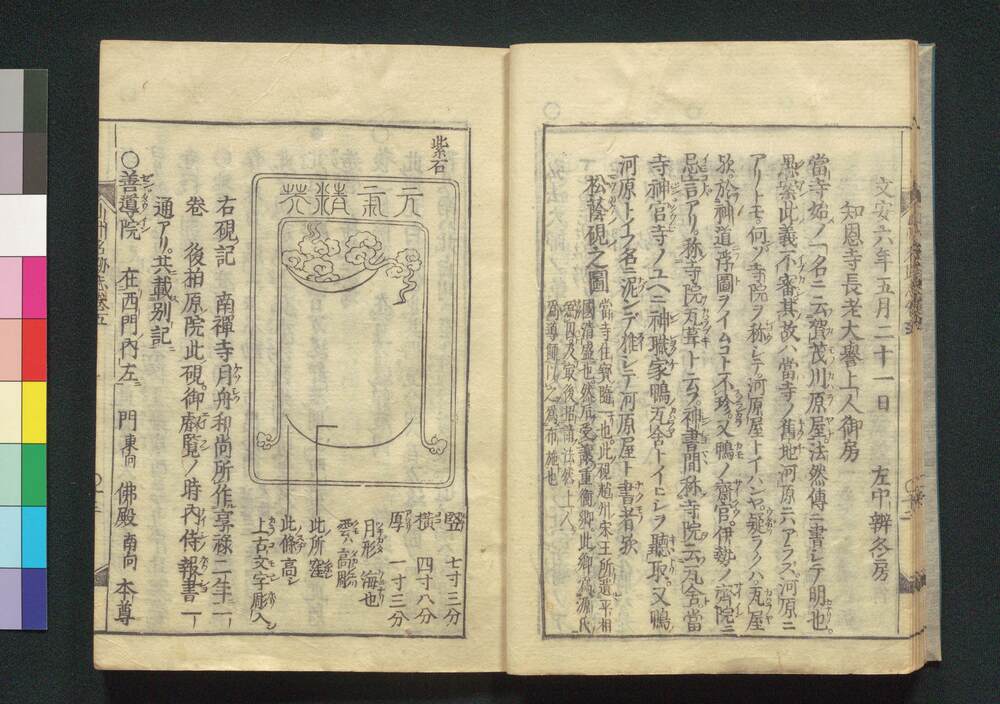 文安六年五月二十一日　左中辨冬房
知恩寺長老大譽上人御房
當寺始ノ名ニ云賀茂川原屋法然傳ニ書シテ明也
愚案此義不審其故ハ當寺ノ舊地河原ニアラズ河原ニ
アリトモ何ソ寺院ヲ称シテ河原屋トイハンヤ疑ラクハ瓦屋
歟於神道浮圖ヲイムコト不珍又鴨ノ齋官伊勢ノ齊院ニ
忌言アリ称寺院瓦葺ト云フ神書間称寺院云瓦舎當
寺神官寺ノユヘニ神職家鴨瓦舎トイヒシヲ聽取又鴨
河原トイフ名ニ泥ンデ推シテ河原屋ト書者歟
松蔭硯之圖
當寺住寳臨一也此硯越州宋王所送平相
國清盛也然后受之重衡卿此卿為源氏
為導師以之為布施也
紫石
元氣精英
竪　七寸三分
横　四寸八分
厚　一寸三分
月形　海也
雲ハ高彫
此所窪
此條高シ
上古文字彫入
右硯記　南禪寺月舟和尚所作享禄二年一
卷　後柏原院此硯御叡覧ノ時内侍報書一
通アリ共載別記
○善導院　在西門内左　門東向　佛殿南向　本尊